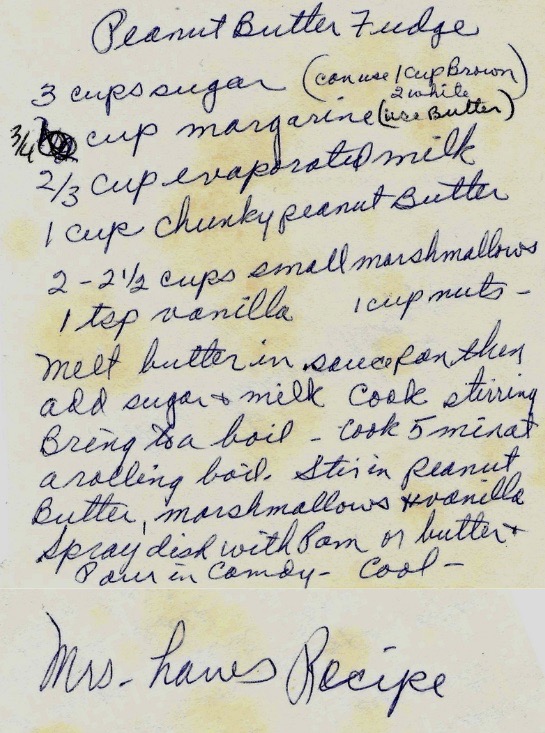 Peanut Butter Fudge
3 cups sugar (can use 1 cup Brown
2 white)
3/4 cup margarine (use Butter)
2/3 cup evaporated milk
1 cup chunky peanut Butter
2 - 2 1/2 cups small marshmallows
1 tsp vanilla 1 cup nuts -
melt butter in saucepan then
add sugar & milk Cook stirring
Bring to a boil - Cook 5 minat
a rolling boil. Stir in peanut
Butter, marshmallows & vanilla
Spray dish with Pam or butter &
Pour in Candy - Cool -
Mrs. Recipe